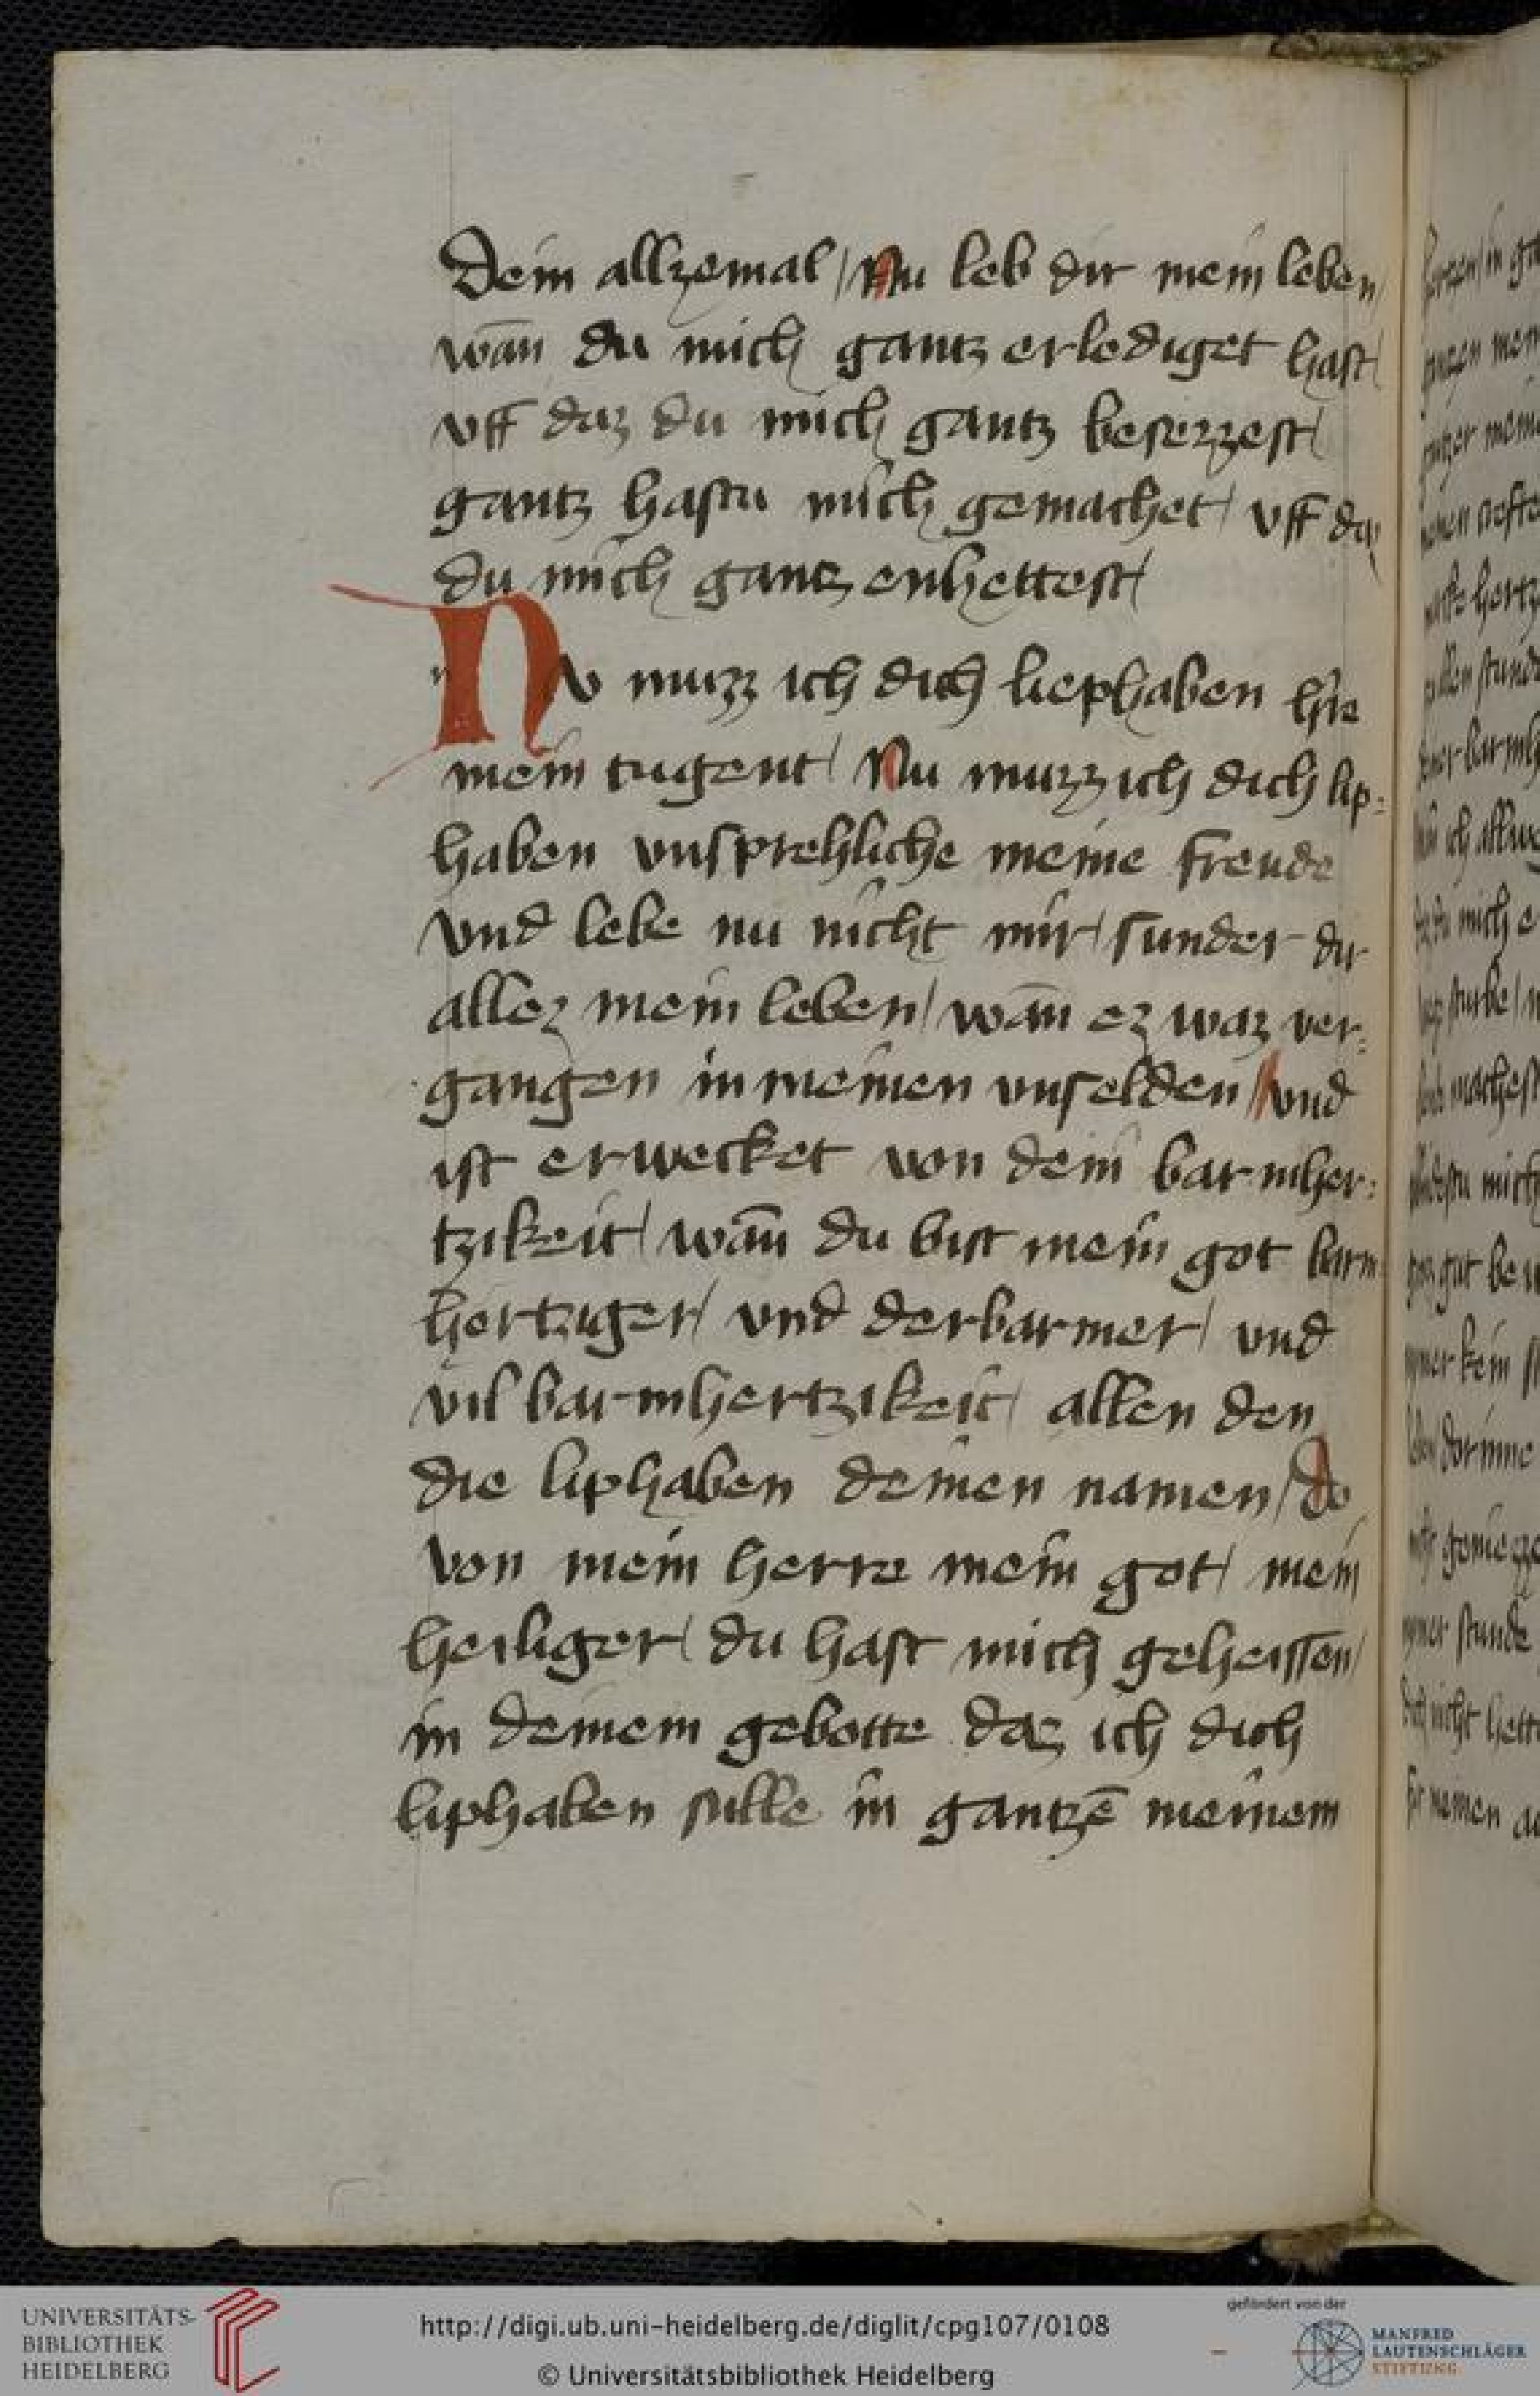 Dein allzemal / Nu leb dir mein leben /
wān du mich gantz erlediget hast /
vff daz du mich gantz besezzest /
gantz hastu mich gemachet / vff daz
du mich gantz enhettest /
Nv muzz ich dich liephaben hie
mein tugent / Nu muzz ich dich lip:
haben vnsprehliche meine freude
vnd lebe nu nicht mir / sunder dir
allez mein leben / wān ez waz ver:
gangen in meinen vnselden / vnd
ist erwecket von dein barmher:
tzikeit / wān du bist mein got barm
hertziger / vnd derbarmer / vnd
vil barmhertzikeit / allen den
die liphaben deinen namen / do
von mein herre mein got / mein
heiliger / du hast mich geheissen /
in deinem gebotte daz ich dich
liphaben sulle in gantzē meinem
UNIVERSITÄTS-
BIBLIOTHEK
HEIDELBERG
http://digi.ub.uni-heidelberg.de/diglit/cpg107/0108
© Universitätsbibliothek Heidelberg
gefördert von der
MANFRED
LAUTENSCHLÄGER
STIFTUNG